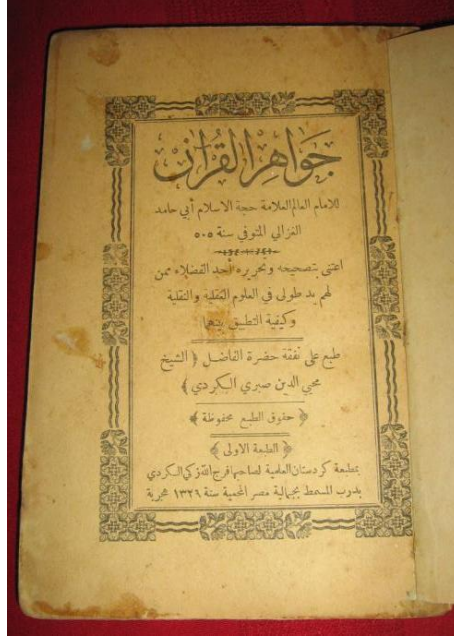 جواهر القرآن
للامام العالم العلامة حجة الاسلام أبي حامد
الغزالي المتوفي سنة ٥٠٥
اعتنى بتصحيحه وتحريره أحد الفضلاء ممن
لهم يد طولى في العلوم العقلية والنقلية
وكيفية التطبيق بينهما
طبع على نفقة حضرة الفاضل ﴿ الشيخ
محيي الدين صبري الكردي ﴾
﴿ حقوق الطبع محفوظة ﴾
﴿ الطبعة الاولى ﴾
بمطبعة كردستان العلمية لصاحبها فرج الله زكي الكردي
بدرب المسمط بجمالية مصر المحمية سنة ١٣٢٩ هجرية